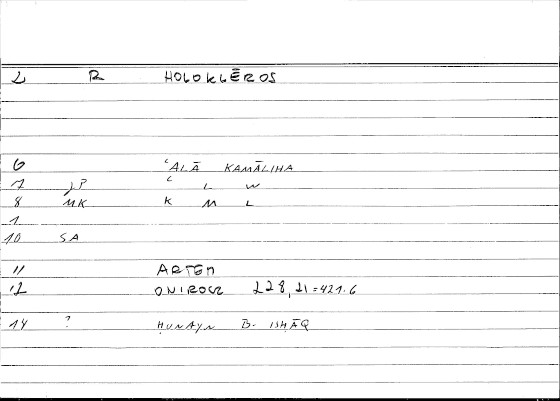 2 R HOLOKLĒROS
6 ʿALĀ KAMĀLIHA
7 LP ʿ L W
8 MK K M L
1
10 SA
11 ARTEM
12 ONIROCR 228,21=421.6
14 ? ḤUNAYN B. ISḤĀQ